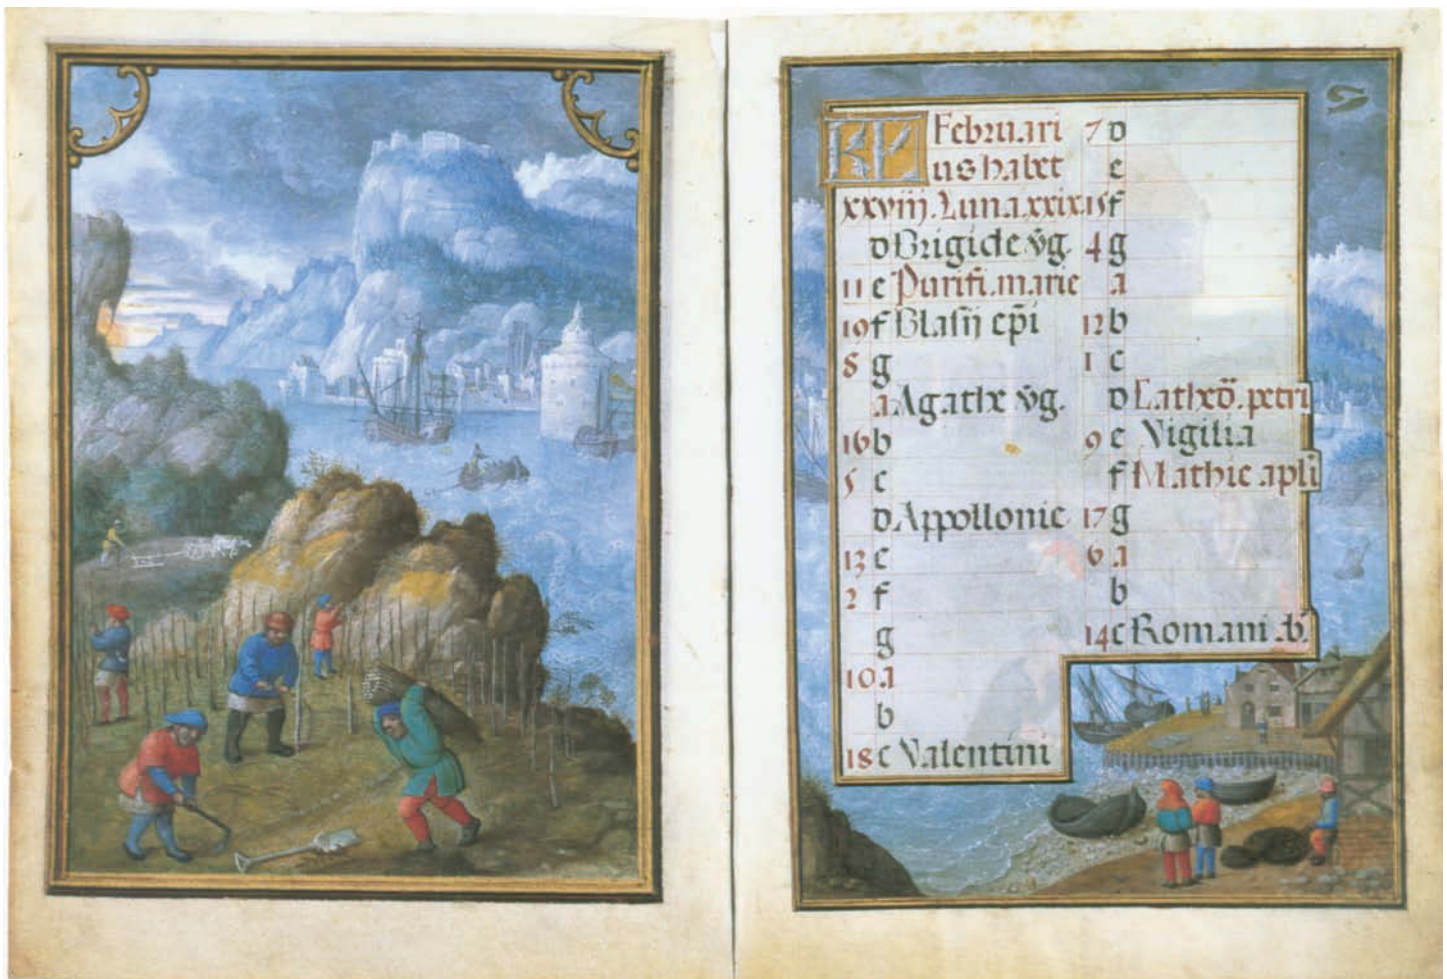 KL Februari
us habet
xxviij. Luna. xxix
d Brigide v̄g.
11 e Purifi. marie
19 f Blasij ep̄i
8 g
a Agathe v̄g.
16 b
5 c
d Appollonie
13 e
2 f
g
10 a
b
18 c Valentini
7 d
e
15 f
4 g
a
12 b
1 c
d Cathed̄. petri
9 e Vigilia
f Mathie apli
17 g
6 a
b
14 c Romani ab.